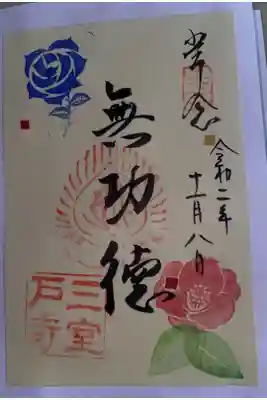 常念
令和二年
十一月八日
無功徳
三室
戸寺